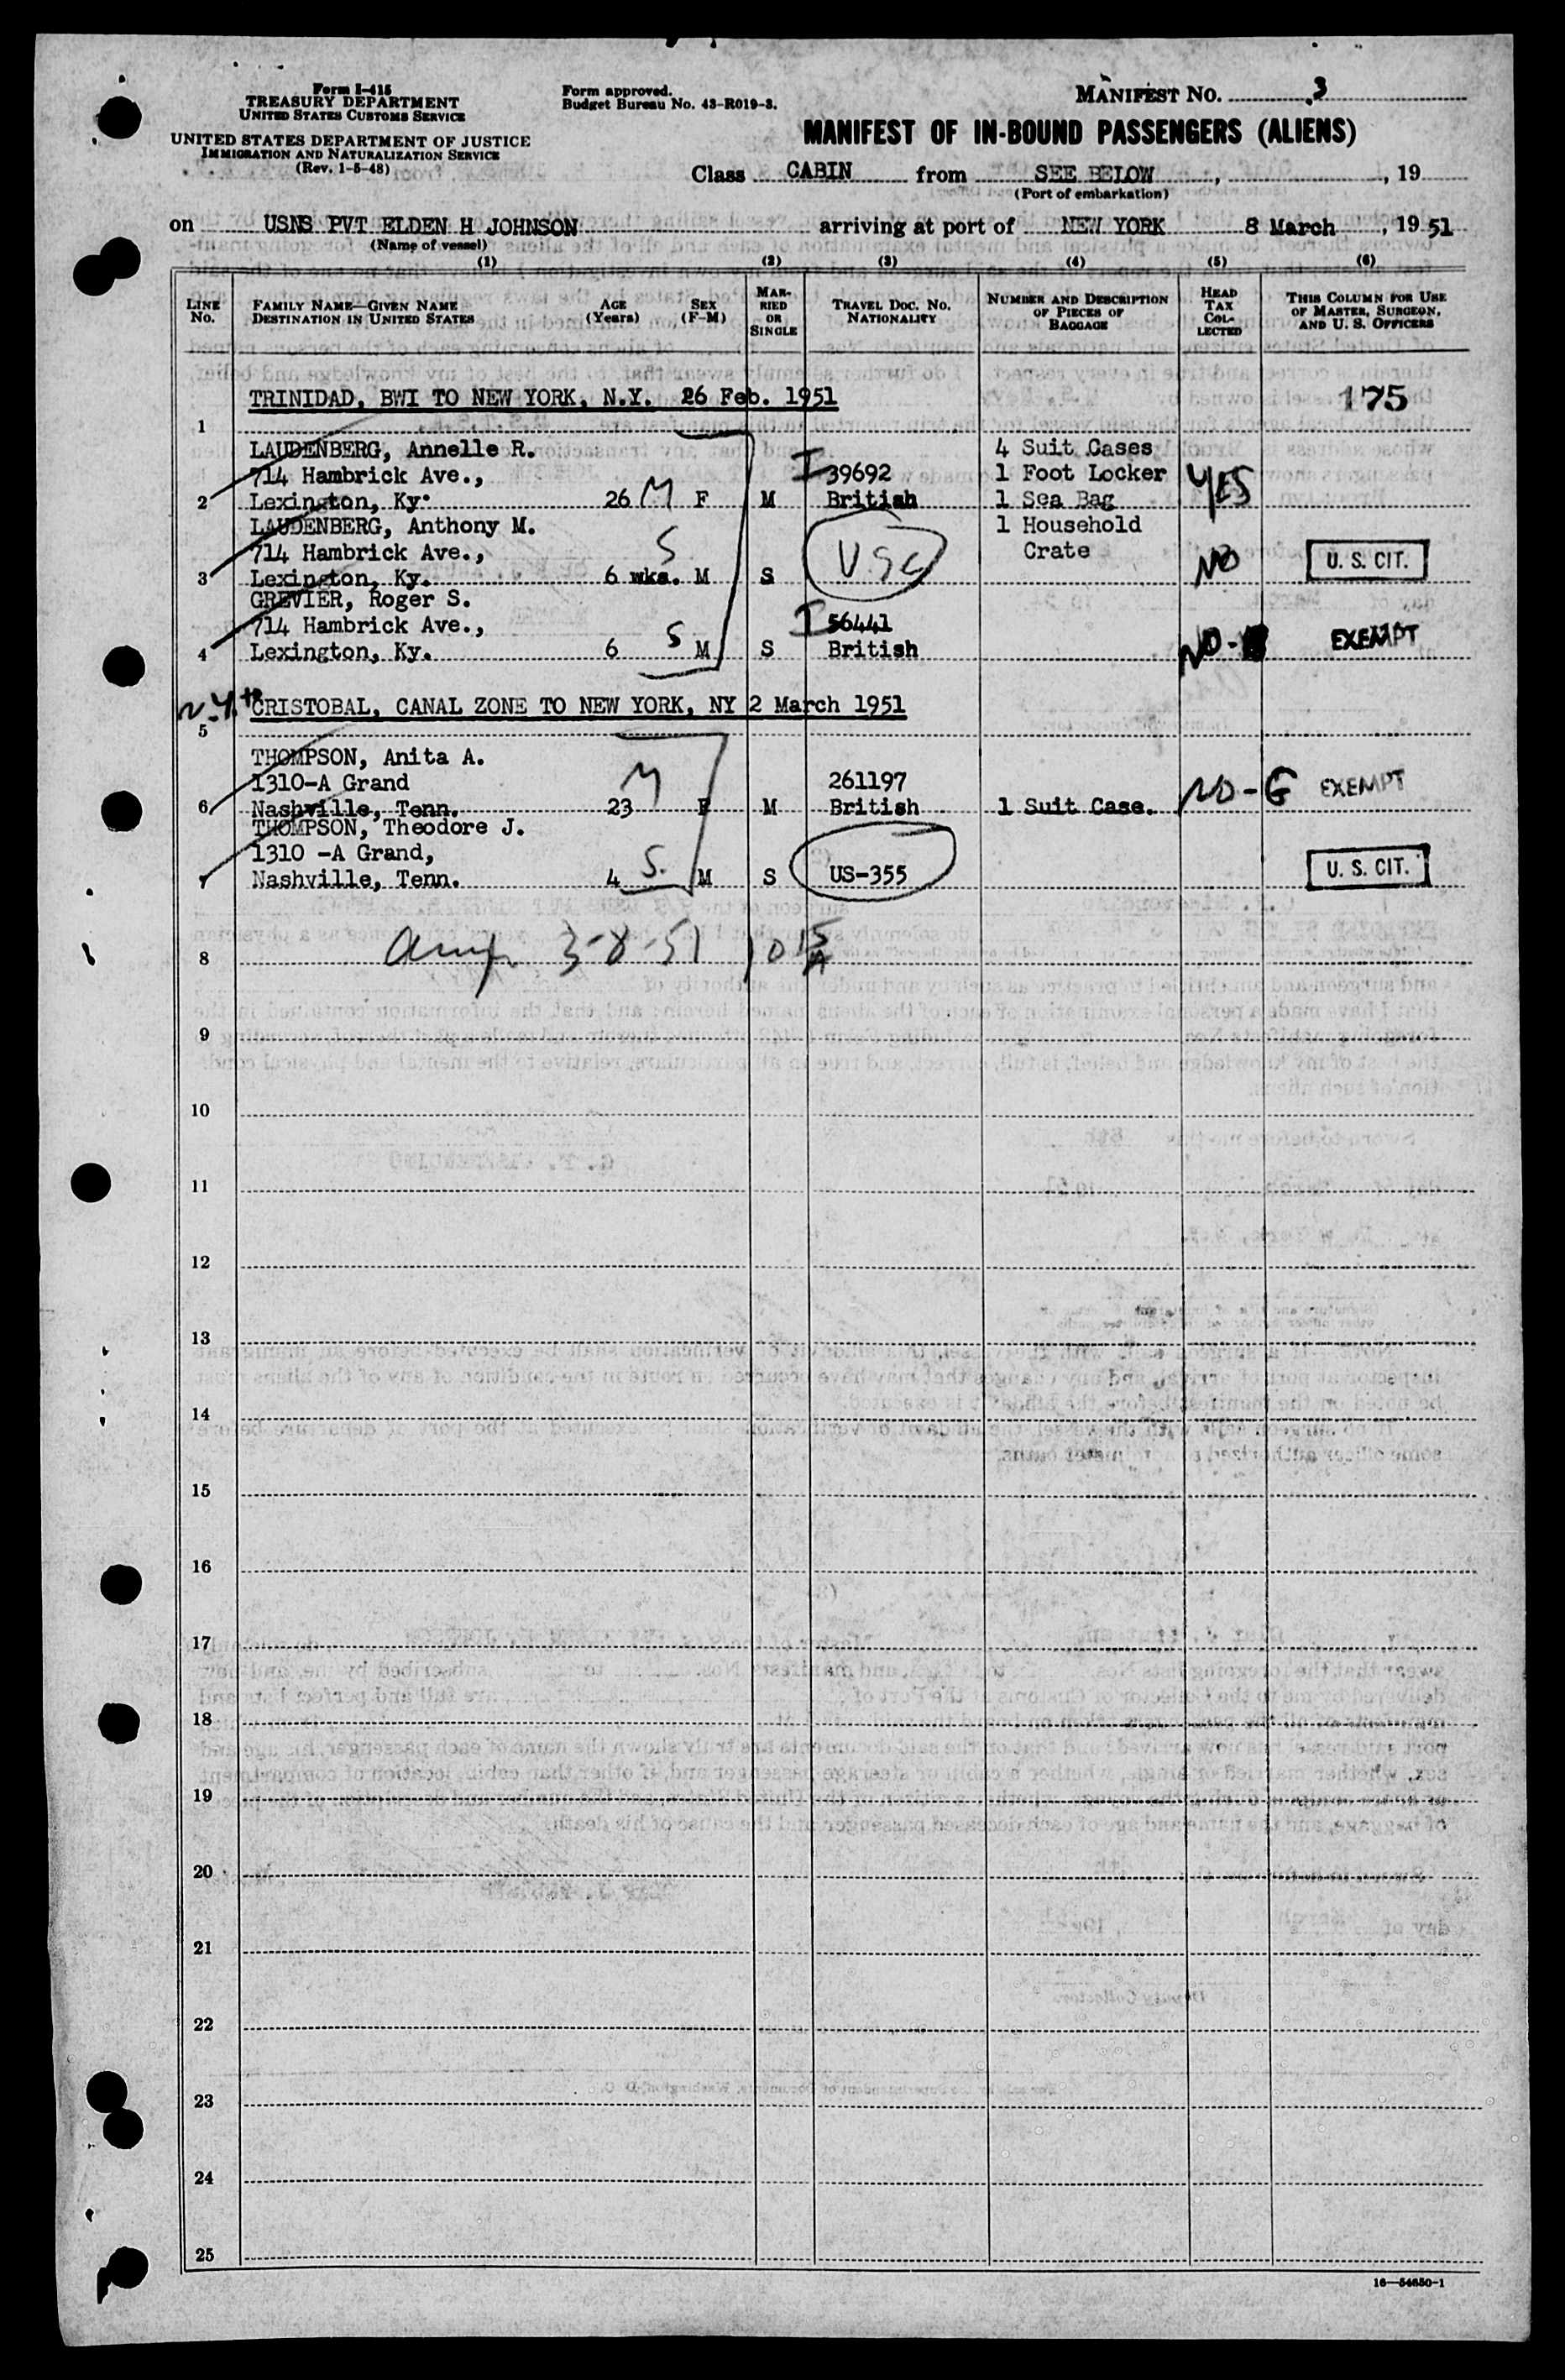 Form I-415
TREASURY DEPARTMENT
UNITED STATES CUSTOMS SERVICE
UNITED STATES DEPARTMENT OF JUSTICE
IMMIGRATION AND NATURALIZATION SERVICE
(Rev. 1-5-48)
Form approved.
Budget Bureau No. 43-R019-3.
MANIFEST NO. 3
MANIFEST OF IN-BOUND PASSENGERS (ALIENS)
Class CABIN from SEE BELOW, , 19
(Port of embarkation)
on USNS PVT ELDEN H JOHNSON arriving at port of NEW YORK 8 March, 19 51
(Name of vessel)
(1) (2) (3) (4) (5) (6)
LINE No. FAMILY NAME—GIVEN NAME DESTINATION IN UNITED STATES AGE (Years) SEX (F-M) MARRIED OR SINGLE TRAVEL DOC. NO. NATIONALITY NUMBER AND DESCRIPTION OF PIECES OF BAGGAGE HEAD TAX COLLECTED THIS COLUMN FOR USE OF MASTER, SURGEON, AND U. S. OFFICERS
TRINIDAD, BWI TO NEW YORK, N.Y. 26 Feb. 1951 175
1
LAUDENBERG, Annelle R. 4 Suit Cases
714 Hambrick Ave., I 39692 1 Foot Locker YES
2 Lexington, Ky. 26 M F M British 1 Sea Bag
LAUDENBERG, Anthony M. 1 Household
714 Hambrick Ave., S USC Crate NO U. S. CIT.
3 Lexington, Ky. 6 wks. M S
GREVIER, Roger S.
714 Hambrick Ave., S I 56441 NO- EXEMPT
4 Lexington, Ky. 6 M S British
N.Y. to CRISTOBAL, CANAL ZONE TO NEW YORK, NY 2 March 1951
5
THOMPSON, Anita A.
1310-A Grand M 261197 NO-G EXEMPT
6 Nashville, Tenn. 23 F M British 1 Suit Case.
THOMPSON, Theodore J.
1310 -A Grand, S.
7 Nashville, Tenn. 4 M S US-355 U. S. CIT.
8 3-8-51 10 15 A
9
10
11
12
13
14
15
16
17
18
19
20
21
22
23
24
25
16—54650-1